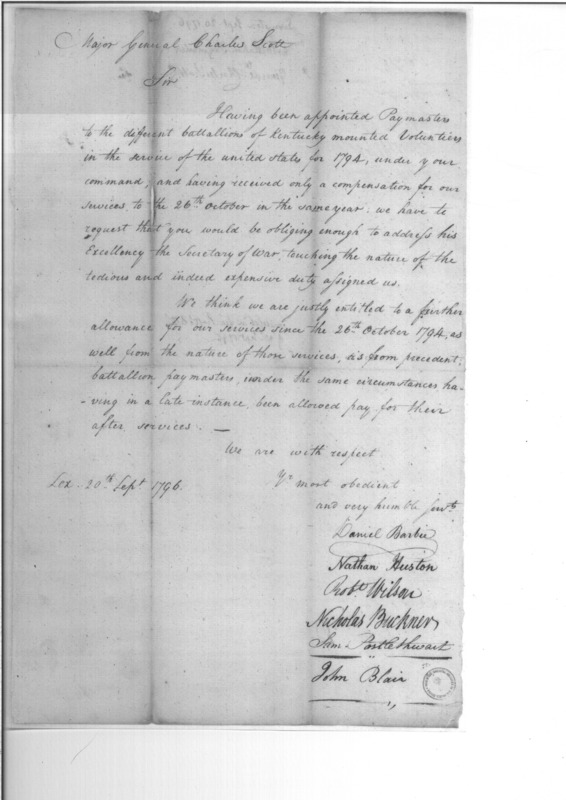 Major General Charles Scott
Sir
Having been appointed Paymasters
to the different battallions of Kentucky mounted Volunteers
in the service of the united states for 1794, under your
command, and having received only a compensation for our
services to the 26th October in the same year: we have to
request that you would be obliging enough to address his
Excellency the Secretary of War, touching the nature of the
tedious and indeed expensive duty assigned us.
We think we are justly entitled to a further
allowance for our services since the 26th October 1794, as
well from the nature of those services, as from precedent;
battallion paymasters, under the same circumstances ha-
-ving in a late instance, been allowed pay for their
after services. —
We are with respect
Yr most obedient
and very humble Servts
Lex - 20th Sept 1796
Daniel Barbee
Nathan Huston
Robt Wilson
Nicholas Buckner
Sam Postlethwait
John Blair